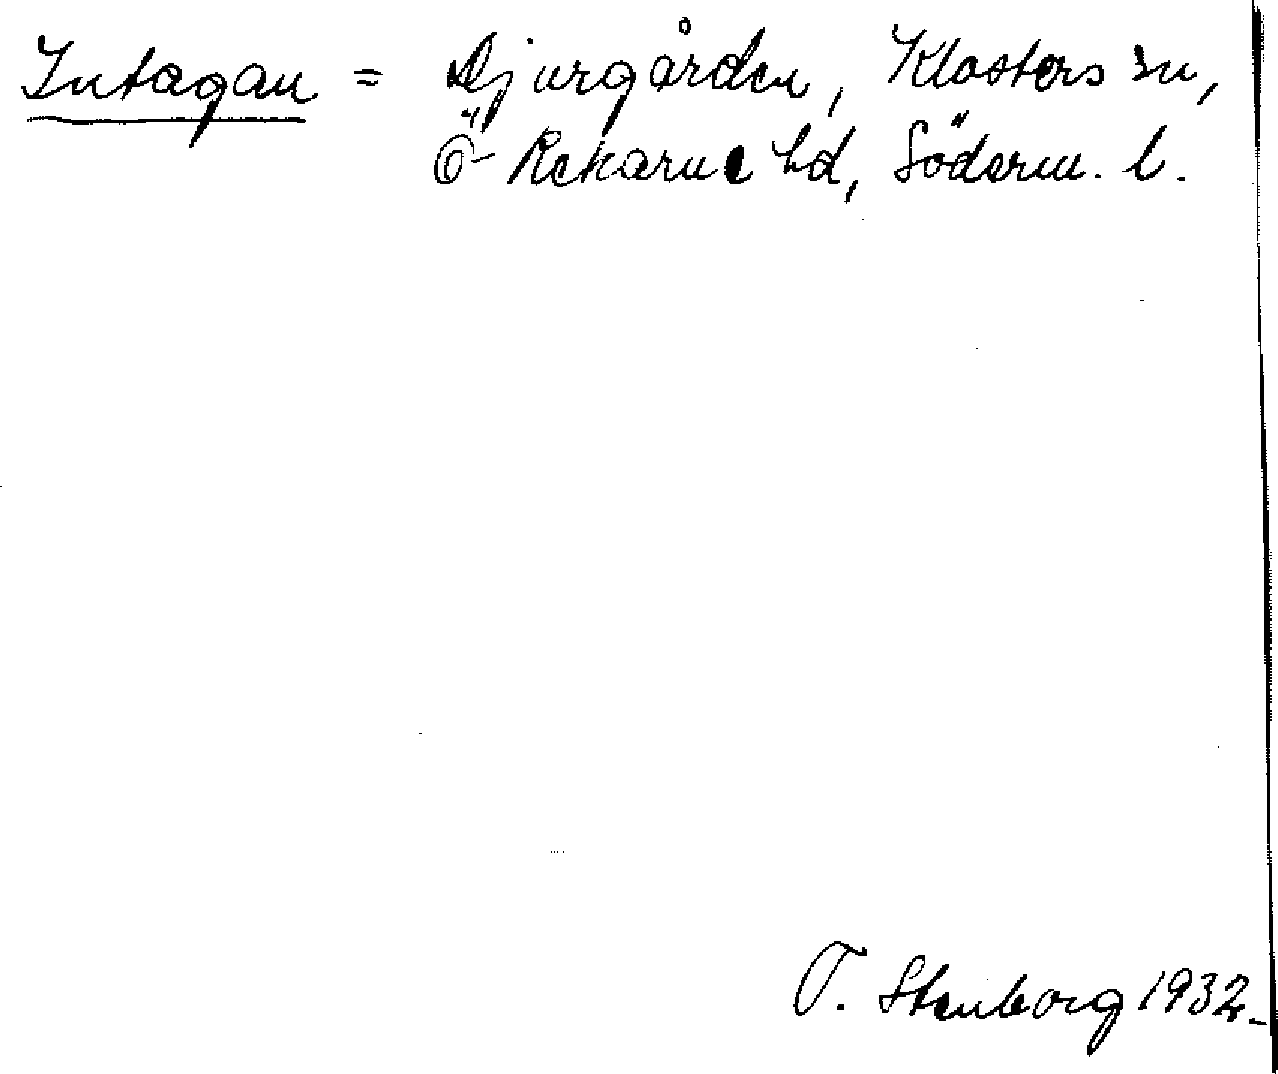 Intagan = Djurgården, Klosters sn,
Ö Rekarne hd, Söderm. l.
T. Stenborg 1932.